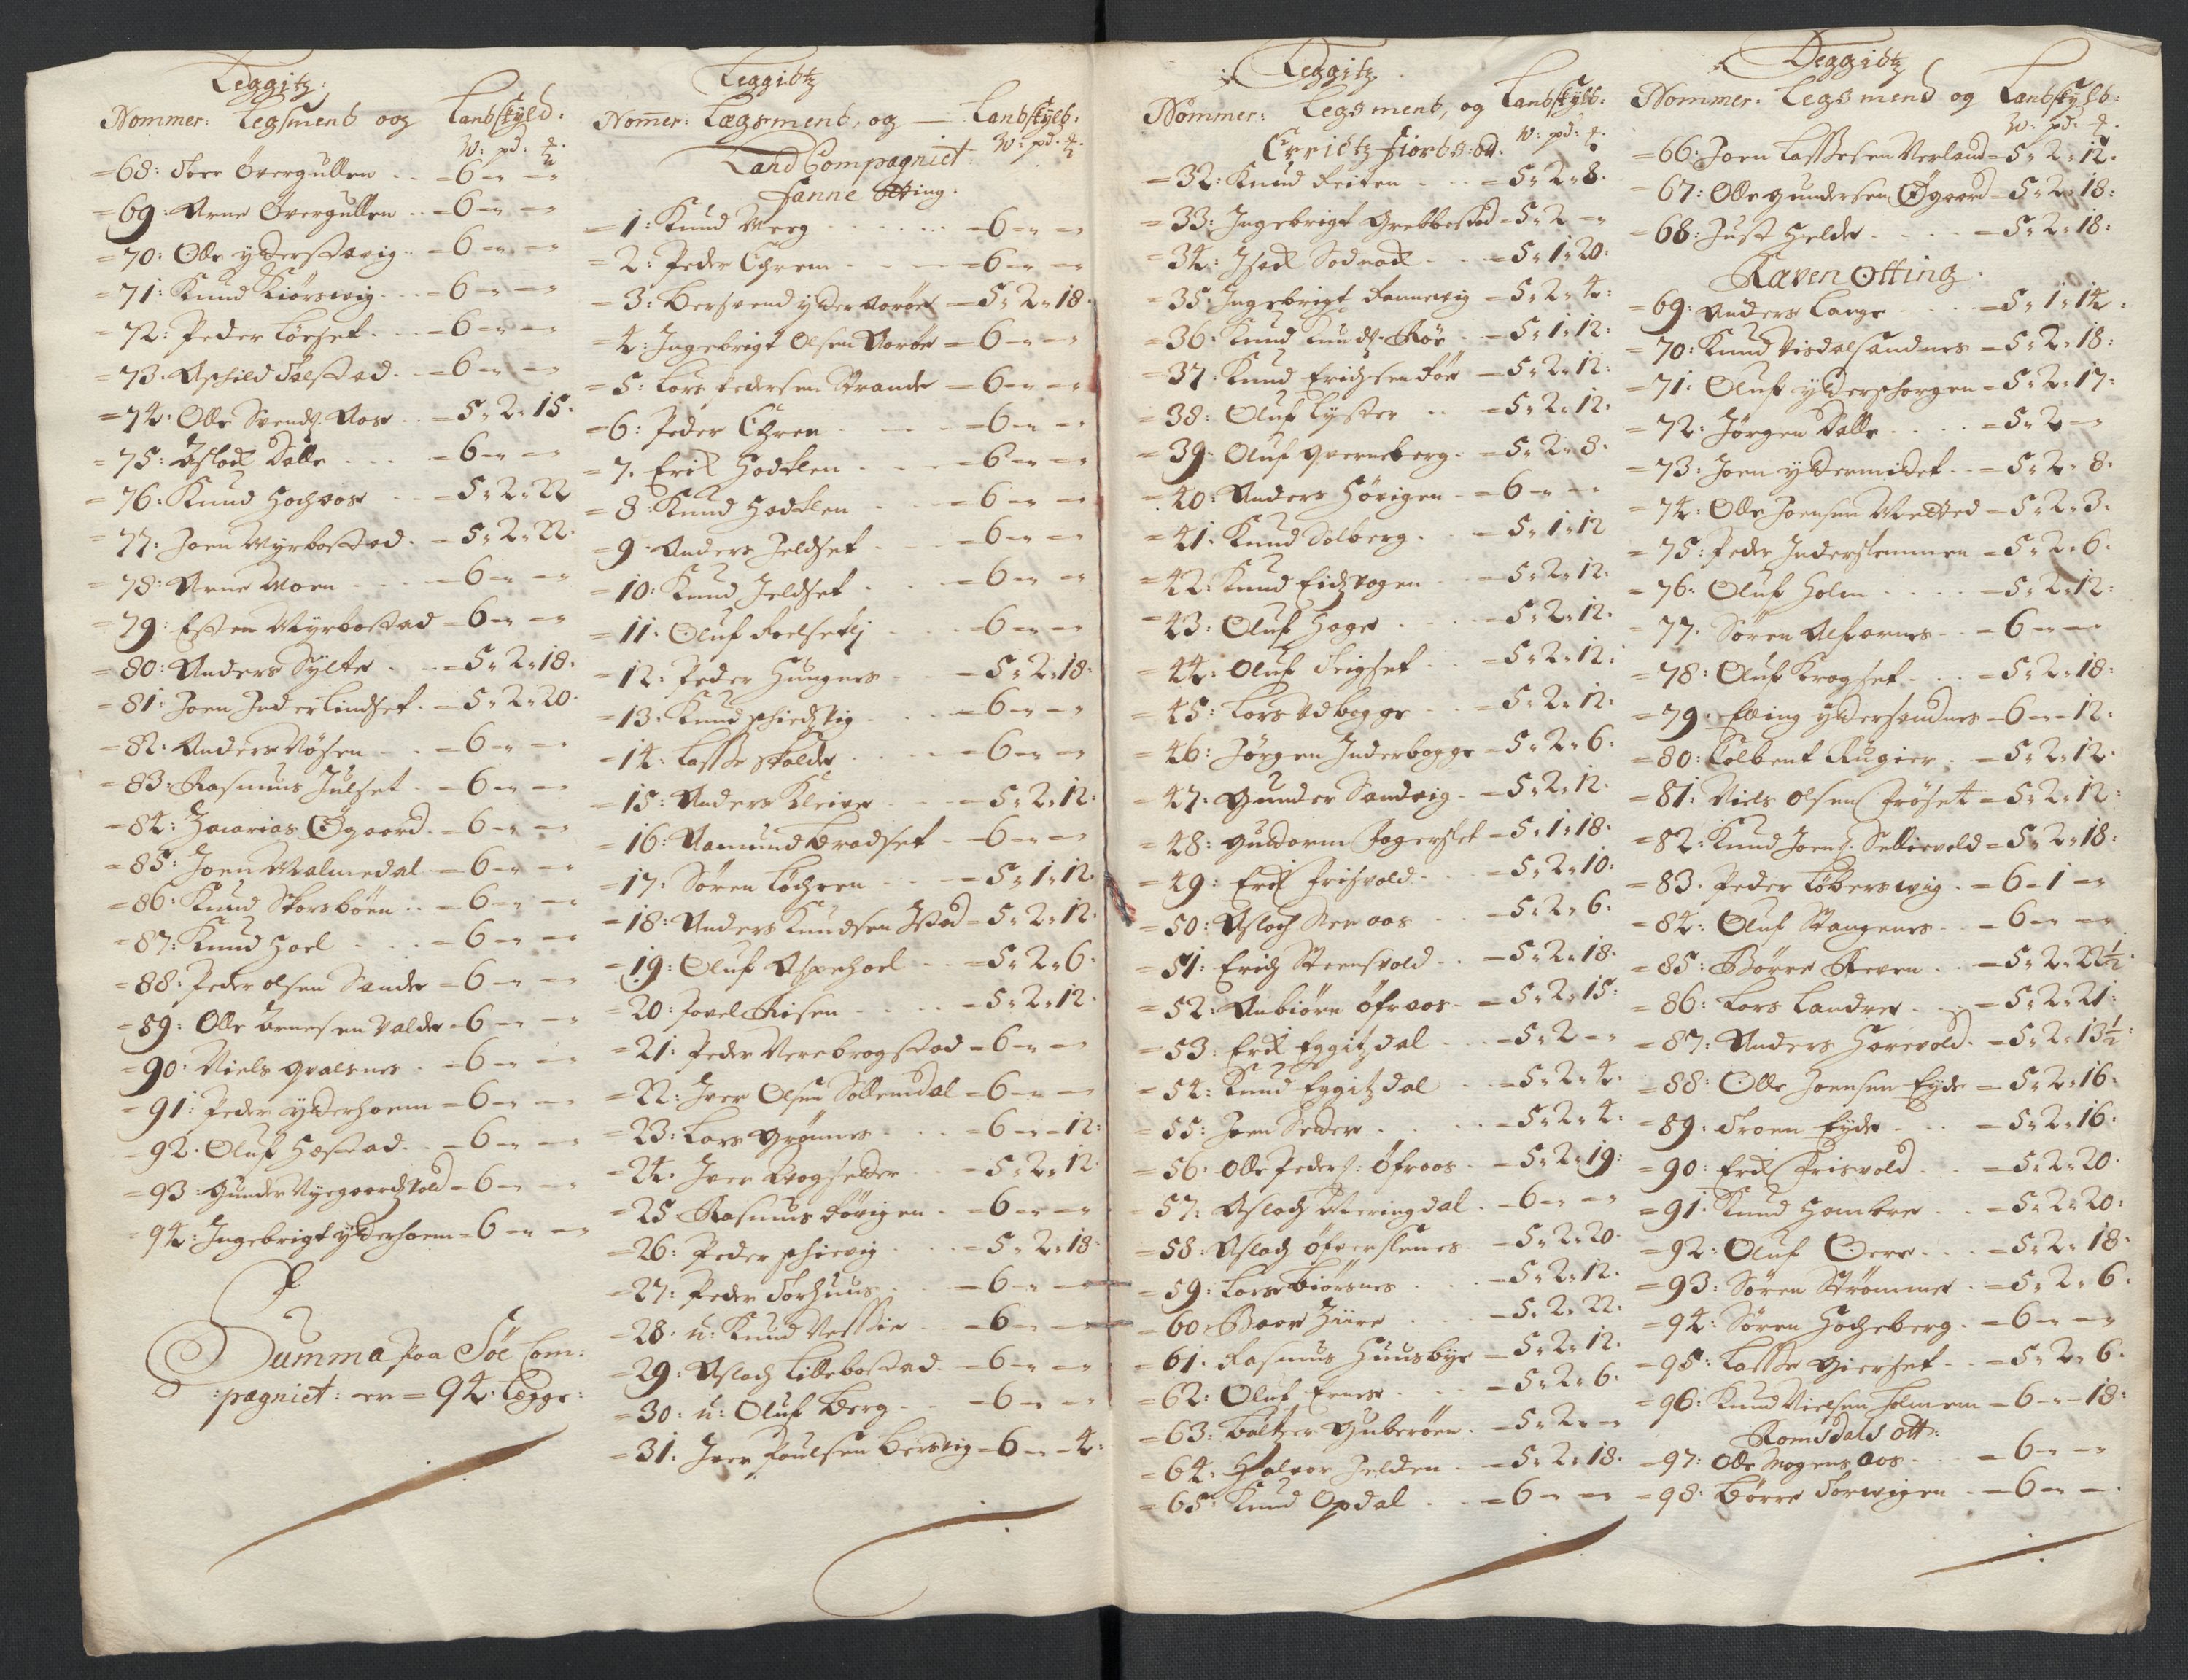 Leggitz:
Nommer: Legsmend og Landskyld.
W: pd: ꝝ.
68: Iver Øvergullen - 6 - -
69: Arne Øvergullen - 6 - -
70: Olle yderstavig - 6 - -
71: Knud Kiørswig - 6 - -
72: Peder Løeset - 6 - -
73: Aschild Talstad - 6 - -
74: Olle Svends: Aas - 5 2 15
75: Aslack Dalle - 6 - -
76: Knud Hochaas - 5 2 22
77: Joen Myrbostad - 5 2 22
78: Arne Moen - 6 - -
79: Esten Myrbostad - 6 - -
80: Anders Sylte - 5 2 18
81: Joen Inderlindset - 5 2 20
82: Anders Nøsen - 6 - -
83: Rasmus Julset - 6 - -
84: Zacarias Øgaard - 6 - -
85: Joen Malmedal - 6 - -
86: Knud Skarsbøen - 6 - -
87: Knud Hoel - 6 - -
88: Peder olsen Sande - 6 - -
89: Olle Arnesen Valde - 6 - -
90: Niels qvalsnes - 6 - -
91: Peder yderhoem - 6 - -
92: Oluf Hæstad - 6 - -
93: Gunder Nyegaardsvold - 6 - -
94: Ingebrigt yderhoem - 6 - -
Summa paa Søe Com:
:pagniet: er = 94: Legge:
Leggidtz
Nommer: Lægsmend, og Landskyld:
Land Compagniet W: pd: ꝝ
Fanne otting:
1: Knud Meeg - 6 - -
2: Peder Chrem - 6 - -
3: Bersvend yder Aarøe - 5 2 18
4: Ingebrigt Olsen Aarøe - 6 - -
5: Lars Pedersen Strande - 6 - -
6: Peder Chren - 6 - -
7. Erik Hodklen - 6 - -
8: Knud Hodklen - 6 - -
9: Anders Jeldset - 6 - -
10: Knud Jeldset - 6 - -
11: Oluf Roelsetlj - 6 - -
12: Peder Hungnes - 5 2 18
13: Knud schiedsvig - 6 - -
14: Lasse skalde - 6 - -
15: Anders Kleive - 5 2 12
16: Aamund bradset - 6 - -
17: Søren Løchren - 5 1 12
18: Anders Knudsen Istad - 5 2 12
19: Oluf Aspehoel - 5 2 6
20: Povel Risen - 5 2 12
21: Peder Nerebrogstad - 6 - -
22: Iver Olsen Sollemdal - 6 - -
23: Lars Grønnes - 6 - 12
24: Iver Krogsetter - 5 2 12
25 Rasmus Børigen - 6 - -
26: Peder schievig - 5 2 18
27: Peder Torhuus - 6 - -
28: u: Knud Nessie - 6 - -
29: Aslach Lillebostad - 6 - -
30: u: Oluf Berg - 6 - -
31: Iver Poulsen Bersvig - 6 - 4
Leggitz
Nommer: Legsmend, og Landskyld:
Errichtz fiords: od. W: pd: ꝝ.
32: Knud Reiten - 5 2 8
33: Ingebrigt Grebbestad - 5 2 -
34: Isack Sodnack - 5 1 20
35: Ingebrigt Rannevig - 5 2 4
36: Knud Knuds: Røe - 5 1 12
37: Knud Erichsen Røe - 5 2 12
38: Oluf Lyster - 5 2 12
39: Oluf qverneberg - 5 2 8
40: Anders Høvigen - 6 - -
41: Knud Solberg - 5 1 12
42: Knud Eidsvogen - 5 2 12
43: Oluf Hage - 5 2 12
44: Oluf Teigset - 5 2 12
45: Lars Udbogge - 5 2 12
46: Jørgen Inderbogge - 5 2 6
47: Gunder Sandvig - 5 2 12
48: Gudorm Fogerslet - 5 1 18
49: Erik Frisvold - 5 2 10
50: Aslach Neraas - 5 2 6
51: Erich Steensvold - 5 2 18
52: Anbiørn øfraas - 5 2 15
53: Erik Eggitzdal - 5 2 -
54: Knud Eggitzdal - 5 2 4
55: Joen Sæter - 5 2 4
56: Olle Peders: Øfraas - 5 2 19
57: Aslach Meringdal - 6 - -
58: Aslach Øfverslemes - 5 2 20
59: Lars Biørsnes - 5 2 12
60: Baar Ziire - 5 2 22
61: Rasmus Huusbye - 5 2 12
62: Oluf Eener - 5 2 6
63: Baltzer Guberøen - 5 2 -
64: Halvor Jelden - 5 2 18
65: Knud Opdal - 6 - -
Leggidtz
Nommer: Legsmend og Landskyld:
W: pd: ꝝ.
66: Joen Lassesen Verland - 5 2 12
67: Olle gundersen Øgaard - 5 2 18
68: Just Helde - 5 2 18
Raven Otting
69: Anders Lange - 5 1 14
70: Knud Visdalsandnes - 5 2 18
71: Oluf yderschorgen - 5 2 17
72: Jørgen Dalle - 5 2 -
73: Joen ydermidet - 5 2 8
74: Olle Joensen Mested - 5 2 3
75: Peder Inderslemmen - 5 2 6
76: Oluf Holm - 5 2 12
77. Søren Alfarnes - 6 - -
78: Oluf Krogset - 5 2 18
79: Elling ydersandnes - 6 - 12
80: Colbent Rugier - 5 2 12
81: Niels olsen Frøset - 5 2 12
82: Knud Joens: Sellievold - 5 2 18
83. Peder Løberswig - 6 1 -
84: Oluf Stangenes - 6 - -
85: Børre Reven - 5 2 22½
86: Lars Landre - 5 2 21
87: Anders Horevold - 5 2 13½
88: Olle Joensen Eyde - 5 2 16
89: Troen Eyde - 5 2 16
90: Erik Frisvold - 5 2 20
91: Knud Hambre - 5 2 20
92: Oluf Oere - 5 2 18
93: Søren Strømme - 5 2 6
94: Søren Hocheberg - 6 - -
95: Lasse gierset - 5 2 6
96: Knud Nielsen Holmem - 6 - 18
Romsdals ott:
97: Olle Mogens Aas - 6 - -
98: Børre Torwigen - 6 - -